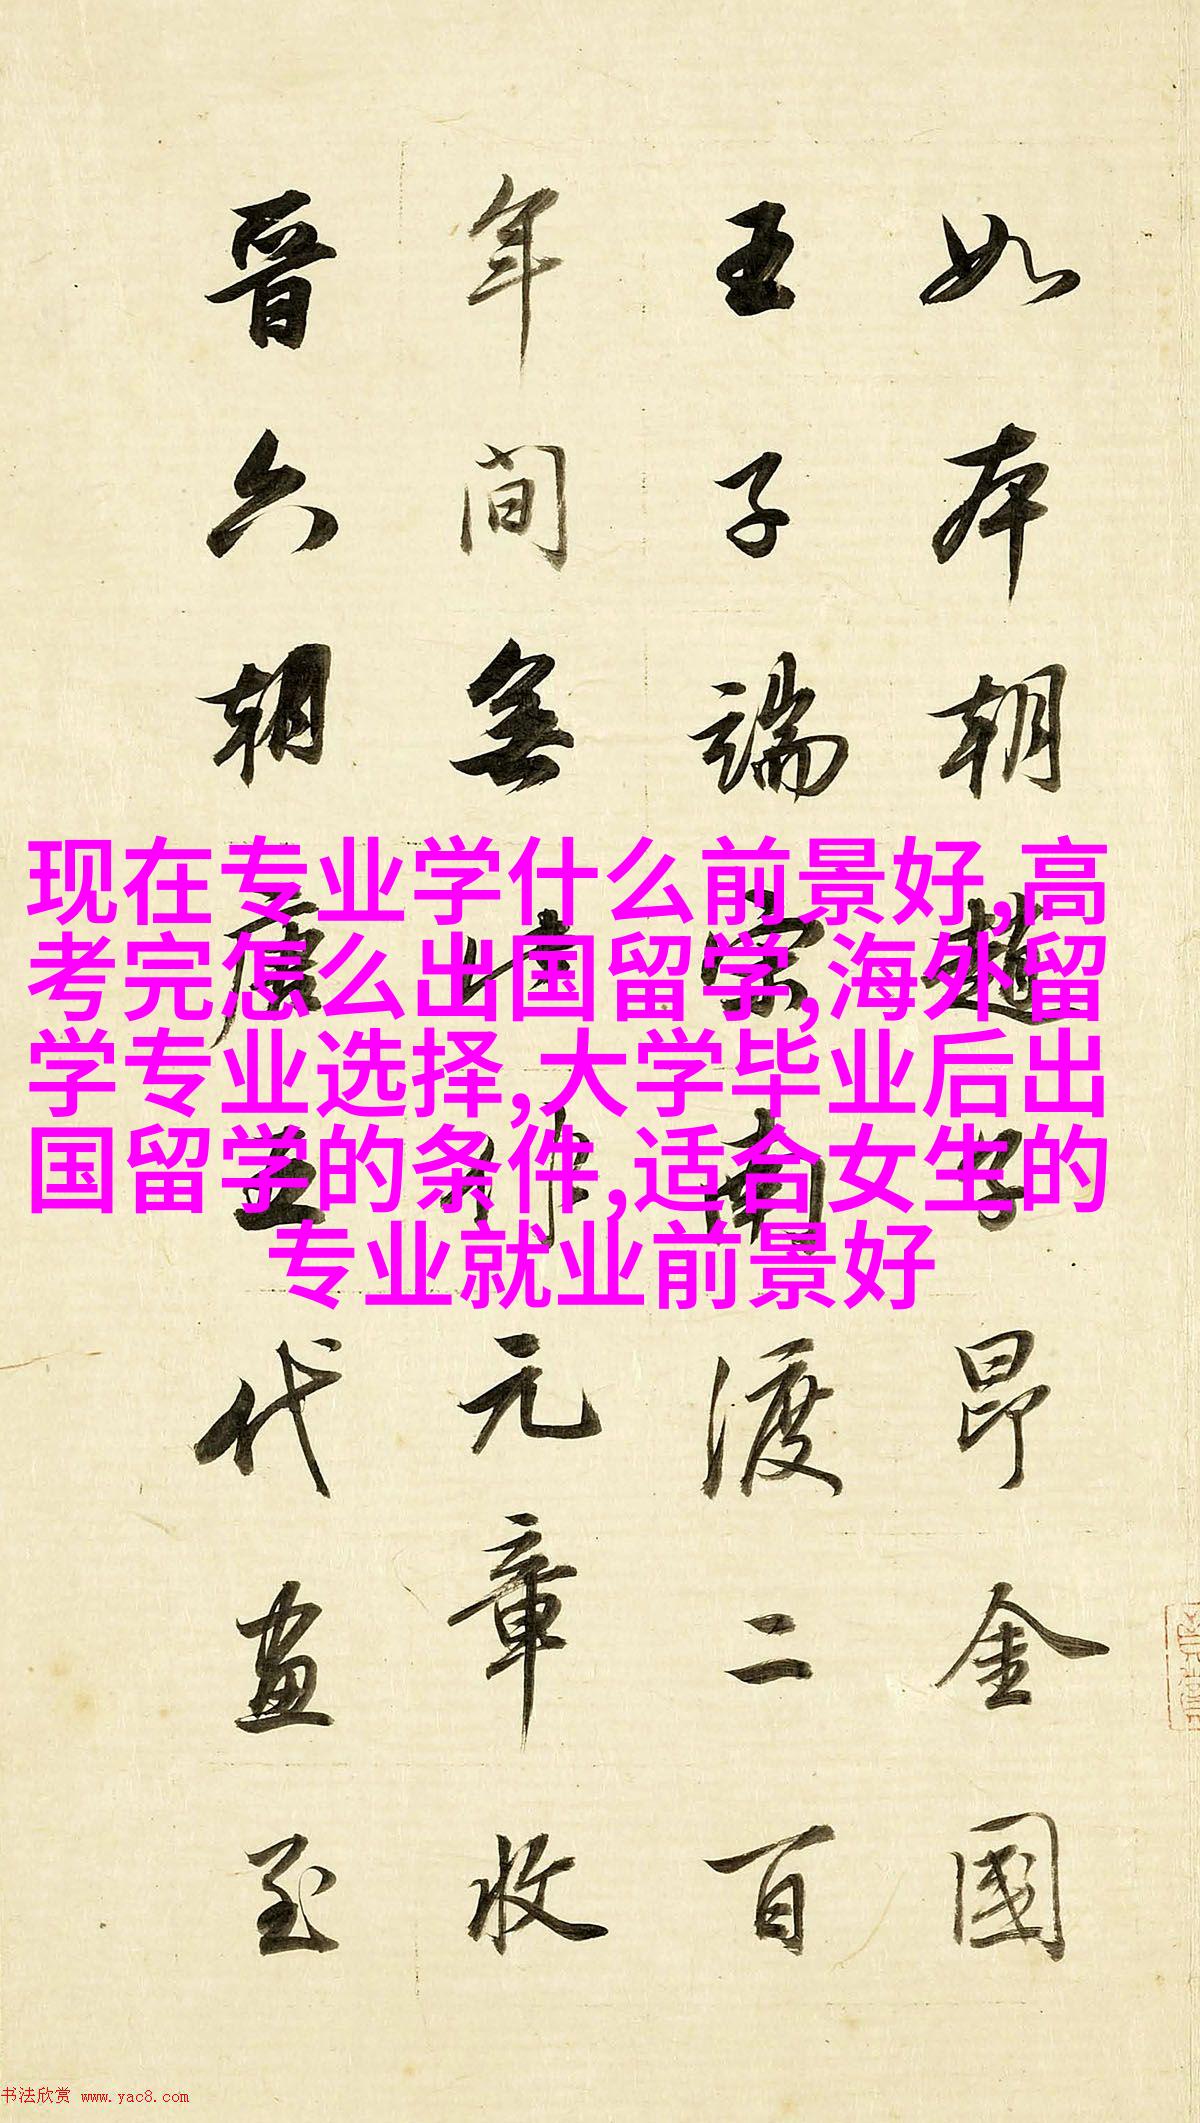 如本朝趙子昂金國
王子端宋南渡二百
年間無此作元章收
晉六朝唐五代畫至
现在专业学什么前景好,高
考完怎么出国留学,海外留
学专业选择,大学毕业后出
国留学的条件,适合女生的
专业就业前景好
书法欣赏 www.yac8.com